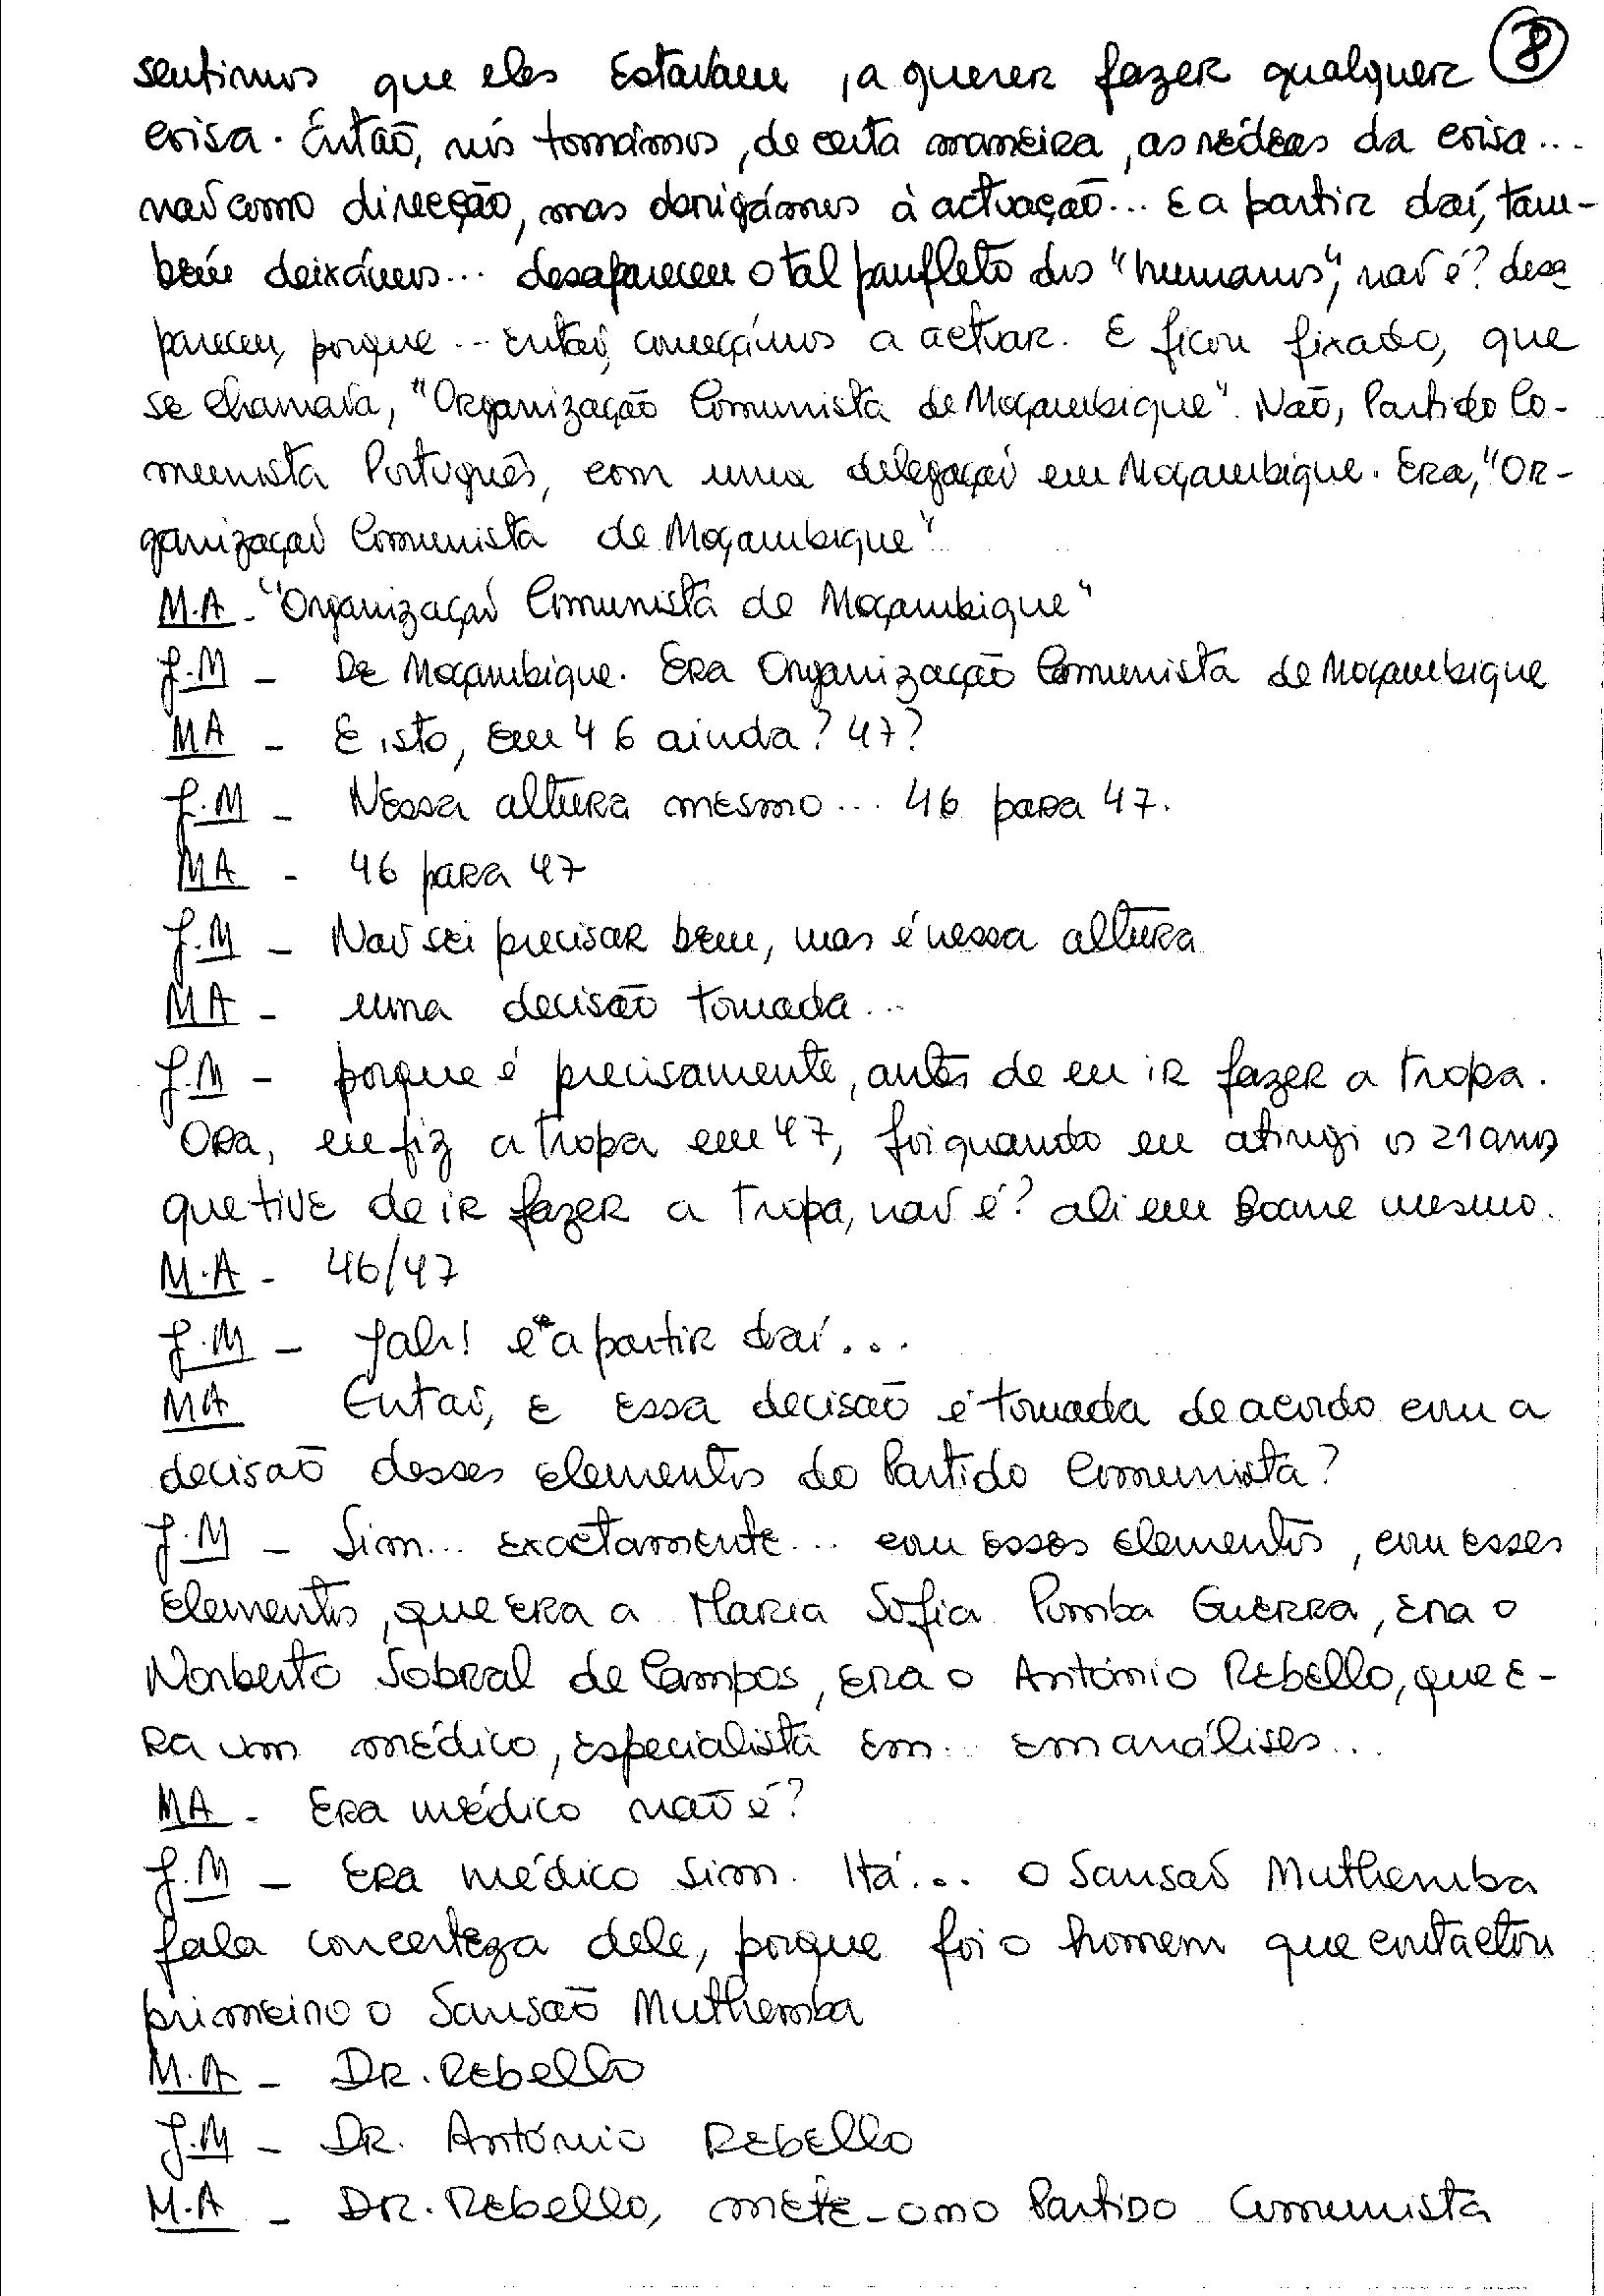 8
sentimos que eles Estavam, a querer fazer qualquer
coisa. Então, nós tomámos, de certa maneira, as rédeas da coisa...
não como direcção, mas obrigámos à actuação... E a partir daí, tam-
bém deixámos... desapareceu o tal panfleto dos "humanos", não é? desa
pareceu, porque... então, começámos a actuar. E ficou fixado, que
se chamava, "Organização Comunista de Moçambique". Não, Partido Co-
munista Português, com uma delegação em Moçambique. Era, "Or-
ganização Comunista de Moçambique"
M.A - "Organização Comunista de Moçambique"
J.M - De Moçambique. Era Organização Comunista de Moçambique
MA - E isto, em 46 ainda? 47?
J.M - Nessa altura mesmo... 46 para 47.
MA - 46 para 47
J.M - Não sei precisar bem, mas é nessa altura
MA - uma decisão tomada...
J.M - porque é precisamente, antes de eu ir fazer a tropa.
Ora, eu fiz a tropa em 47, foi quando eu atingi os 21 anos
que tive de ir fazer a tropa, não é? ali em Boane mesmo.
M.A - 46/47
J.M - Jah! e a partir daí...
MA Então, e essa decisão é tomada de acordo com a
decisão desses elementos do Partido Comunista?
J.M - Sim... exactamente... com esses elementos, com esses
elementos, que era a Maria Sofia Pomba Guerra, era o
Norberto Sobral de Campos, era o António Rebello, que e-
ra um médico, especialista em... em análises...
MA - Era médico não é?
J.M - Era médico sim. Há... o Sansão Muthemba
fala concerteza dele, porque foi o homem que contactou
primeiro o Sansão Muthemba
M.A - Dr. Rebello
J.M - Dr. António Rebello
M.A - Dr. Rebello, mete-o no Partido Comunista